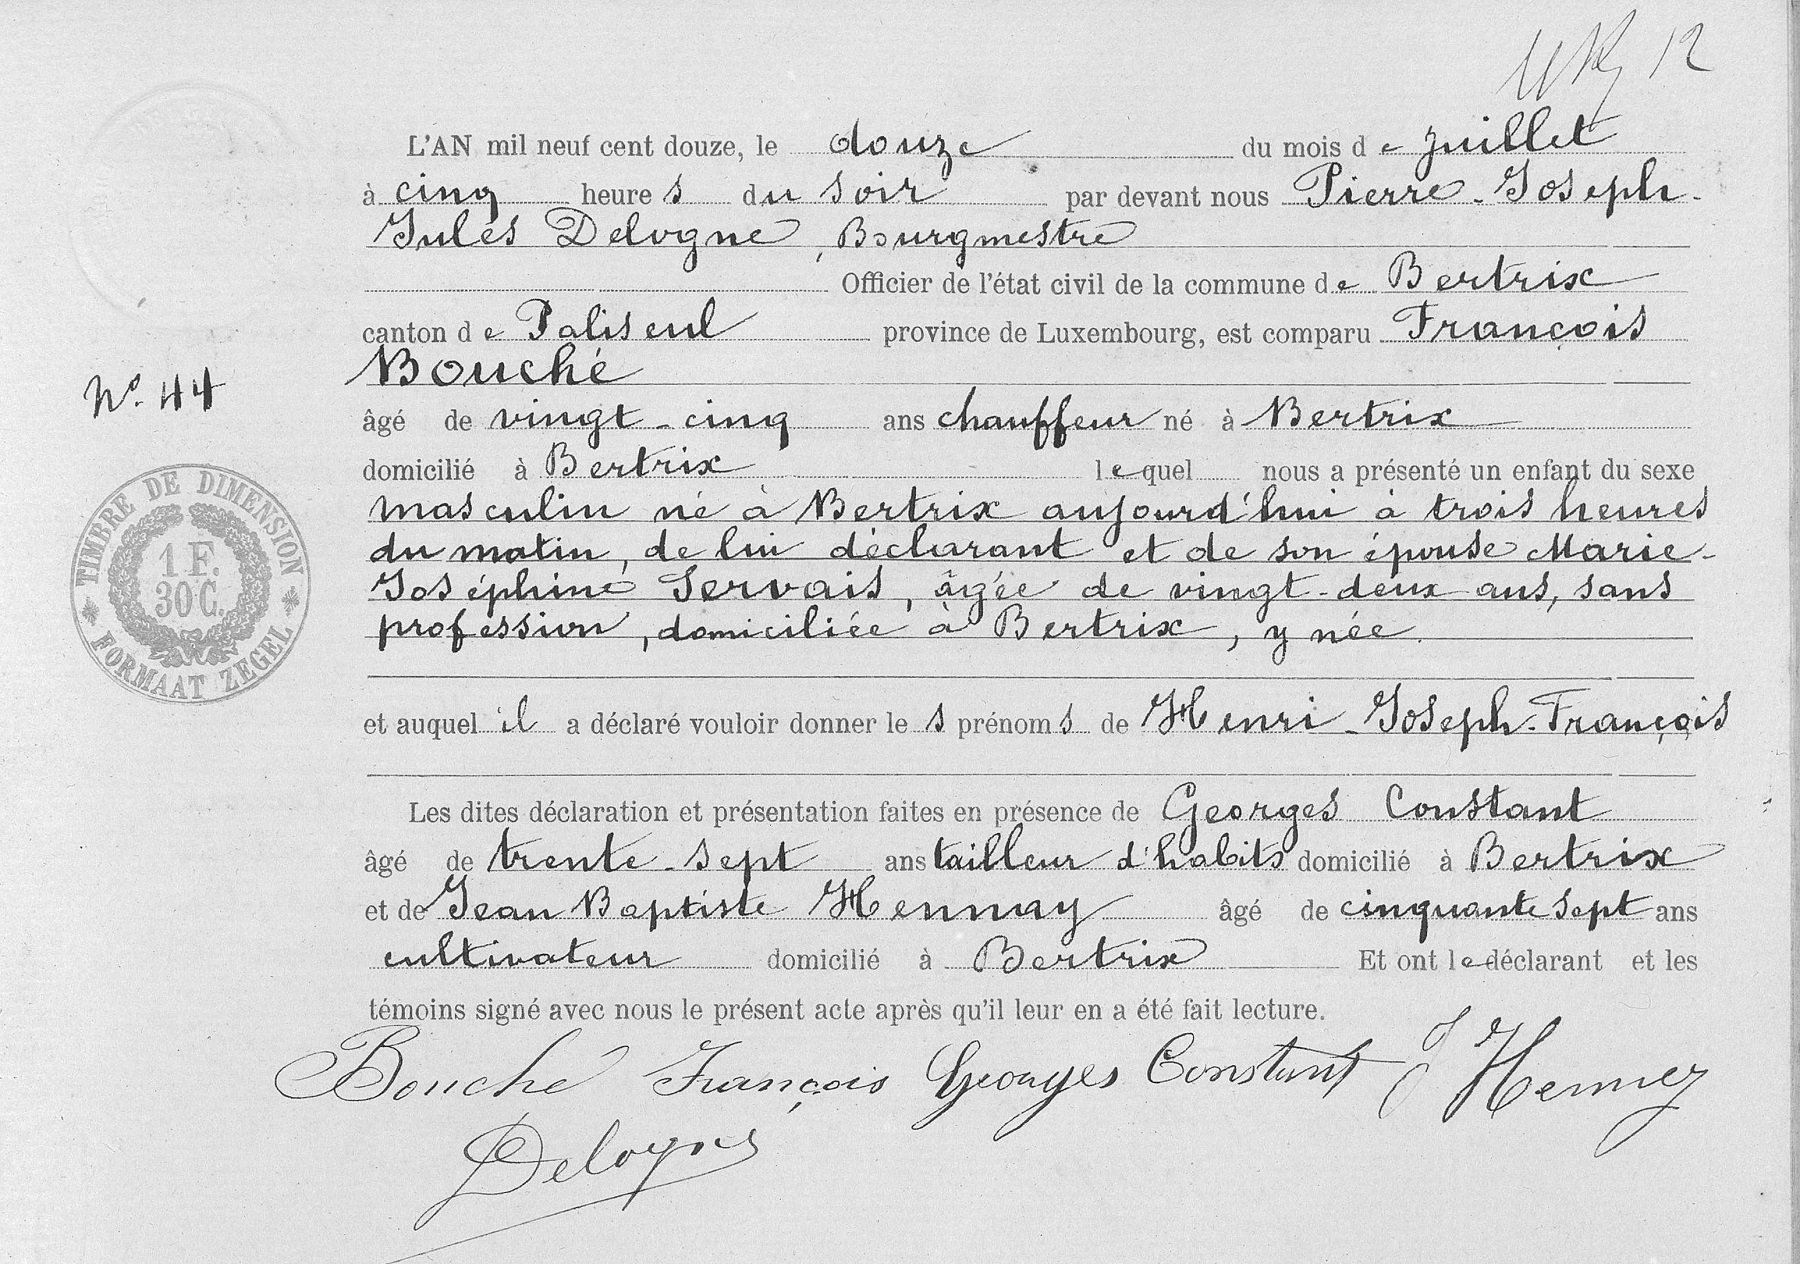 12
L'AN mil neuf cent douze, le douze du mois de juillet
à cinq heures du soir par devant nous Pierre-Joseph-
Jules Delogne, Bourgmestre
Officier de l'état civil de la commune de Bertrix
canton de Paliseul province de Luxembourg, est comparu François
Bouché
âgé de vingt-cinq ans chauffeur né à Bertrix
domicilié à Bertrix lequel nous a présenté un enfant du sexe
masculin né à Bertrix aujourd'hui à trois heures
du matin, de lui déclarant et de son épouse Marie-
Joséphine Servais, âgée de vingt-deux ans, sans
profession, domiciliée à Bertrix, y née.
et auquel il a déclaré vouloir donner les prénoms de Henri-Joseph-François
Les dites déclaration et présentation faites en présence de Georges Constant
âgé de trente-sept ans tailleur d'habits domicilié à Bertrix
et de Jean Baptiste Hennay âgé de cinquante sept ans
cultivateur domicilié à Bertrix Et ont le déclarant et les
témoins signé avec nous le présent acte après qu'il leur en a été fait lecture.
Bouché François Georges Constant J Hennez
Delogne
No. 44
TIMBRE DE DIMENSION
1 F.
30 C.
FORMAAT ZEGEL